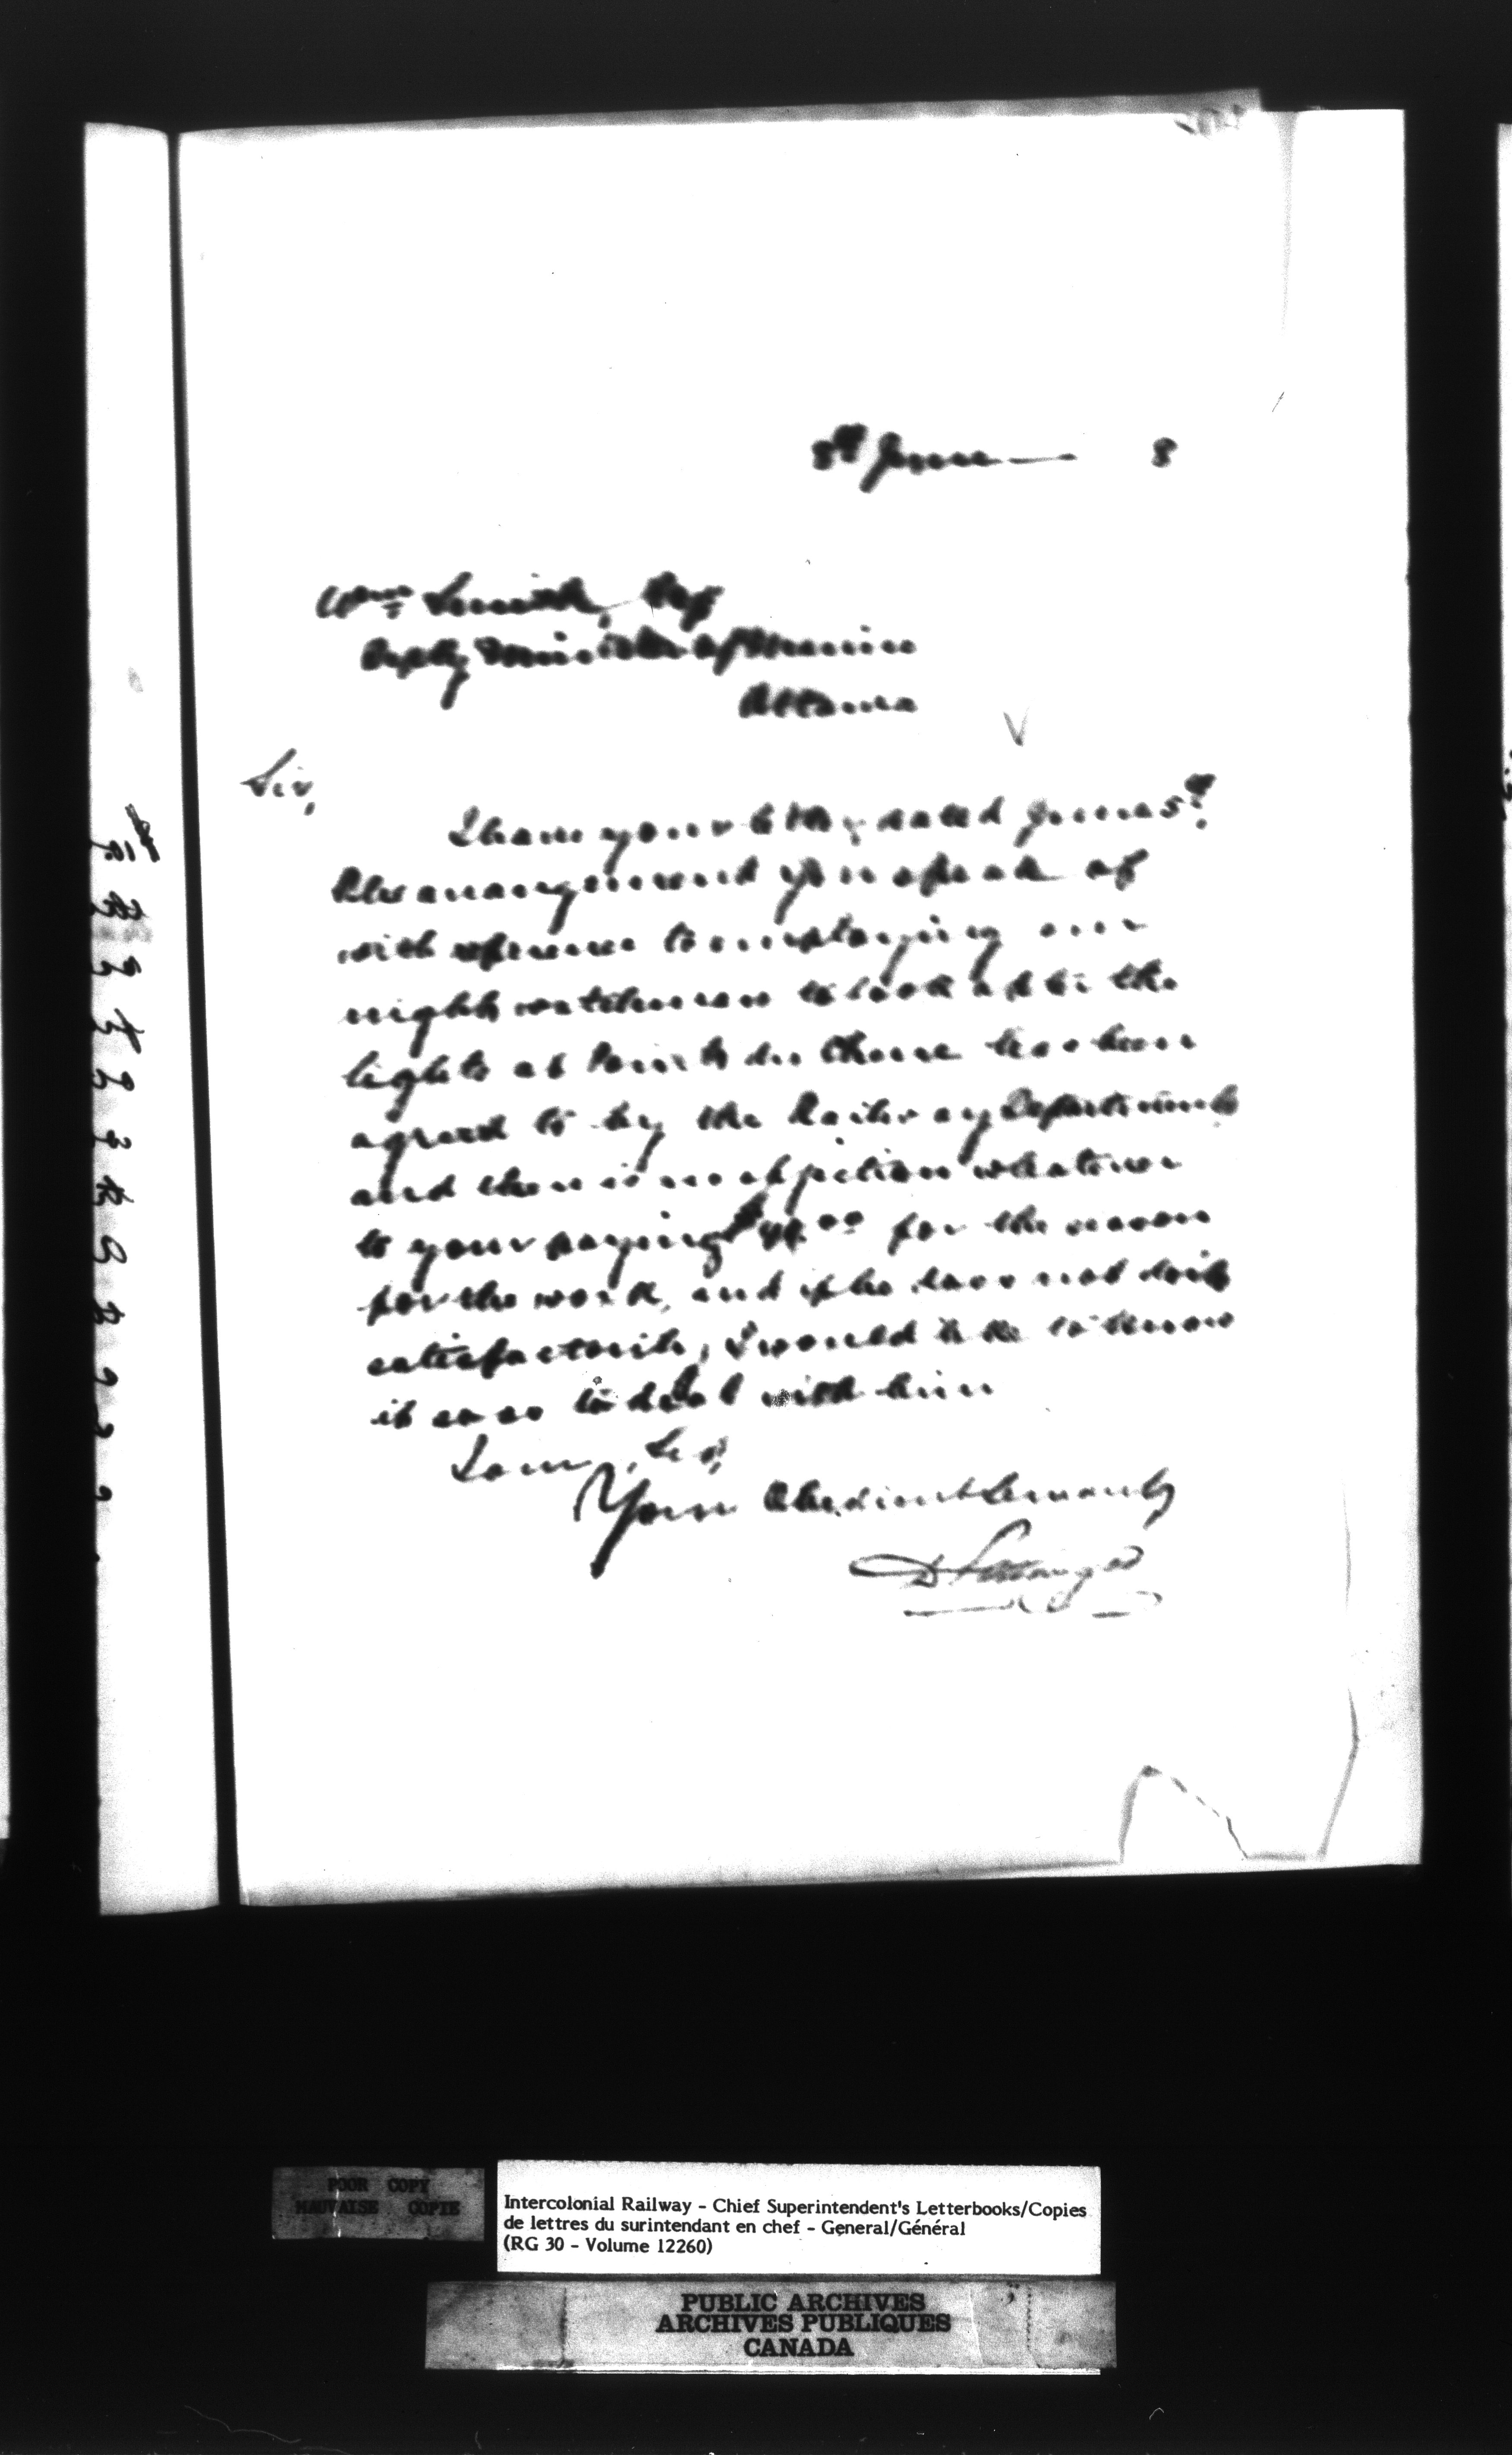 8th June — 8
Wm Smith, Esq
Depty Minister of Marine
Ottawa
Sir,
I have your letter, dated June 5th.
The arrangement you speak of
with reference to employing our
night watchman to look after the
lights at Pointe du Chene has been
agreed to by the Railway Department
and there is no objection whatever
to your paying for the season
for the work, and if he does not do it
satisfactorily, I would like to know
it so as to deal with him
I am, Sir,
Your Obedient Servant
D Pottinger
POOR COPY
MAUVAISE COPIE
Intercolonial Railway - Chief Superintendent's Letterbooks/Copies
de lettres du surintendant en chef - General/Général
(RG 30 - Volume 12260)
PUBLIC ARCHIVES
ARCHIVES PUBLIQUES
CANADA